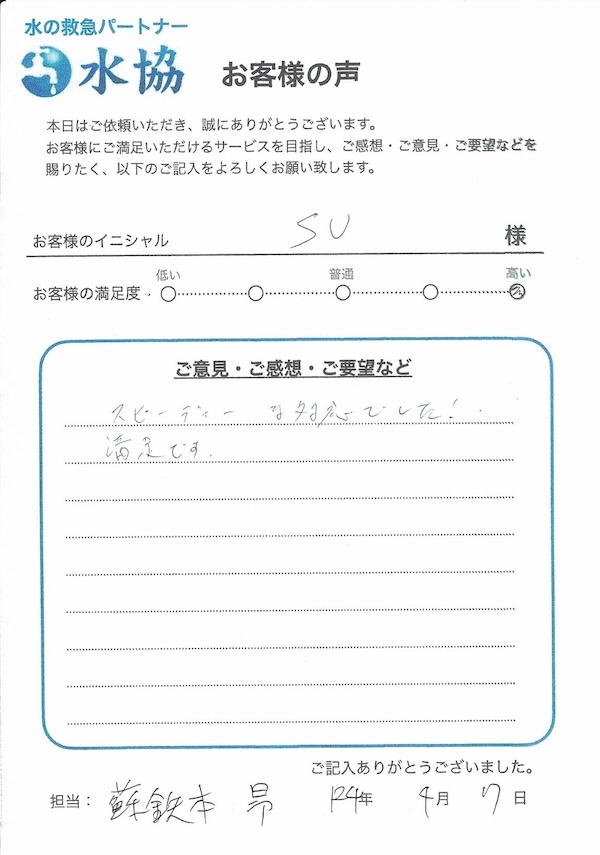 水の救急パートナー
水協 お客様の声
本日はご依頼いただき、誠にありがとうございます。
お客様にご満足いただけるサービスを目指し、ご感想・ご意見・ご要望などを
賜りたく、以下のご記入をよろしくお願い致します。
お客様のイニシャル SU 様
低い 普通 高い
お客様の満足度
ご意見・ご感想・ご要望など
スピーディーな対応でした!
満足です.
ご記入ありがとうございました。
担当： 蘇鉄本 昴 年 4月 7日